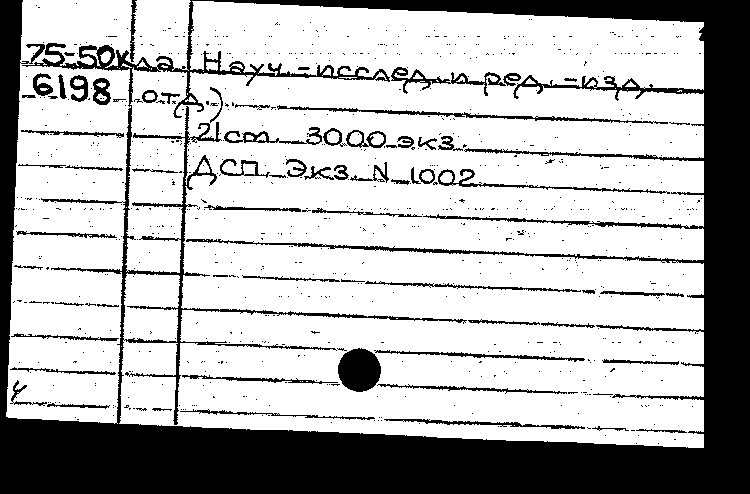 75-50 кла. Науч.-исслед. и ред.-изд.
6198 отд.)
21 cm. 3000 экз.
ДСП. Экз. N 1002